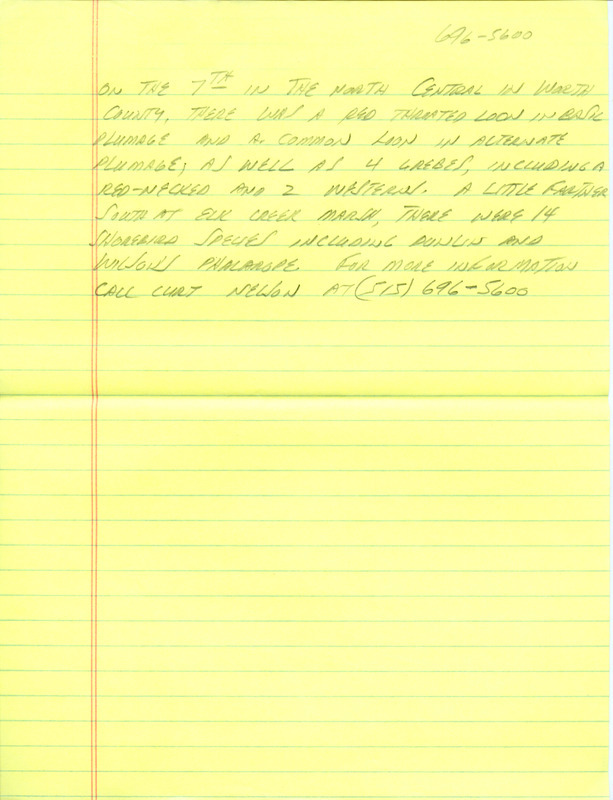 696-5600
ON THE 7TH IN THE NORTH CENTRAL IN WORTH
COUNTY, THERE WAS A RED THROATED LOON IN BASIC
PLUMAGE AND A COMMON LOON IN ALTERNATE
PLUMAGE; AS WELL AS 4 GREBES, INCLUDING A
RED-NECKED AND 2 WESTERNS. A LITTLE FARTHER
SOUTH AT ELK CREEK MARSH, THERE WERE 14
SHOREBIRD SPECIES INCLUDING DUNLIN AND
WILSON'S PHALAROPE. FOR MORE INFORMATION
CALL CURT NELSON AT (515) 696-5600